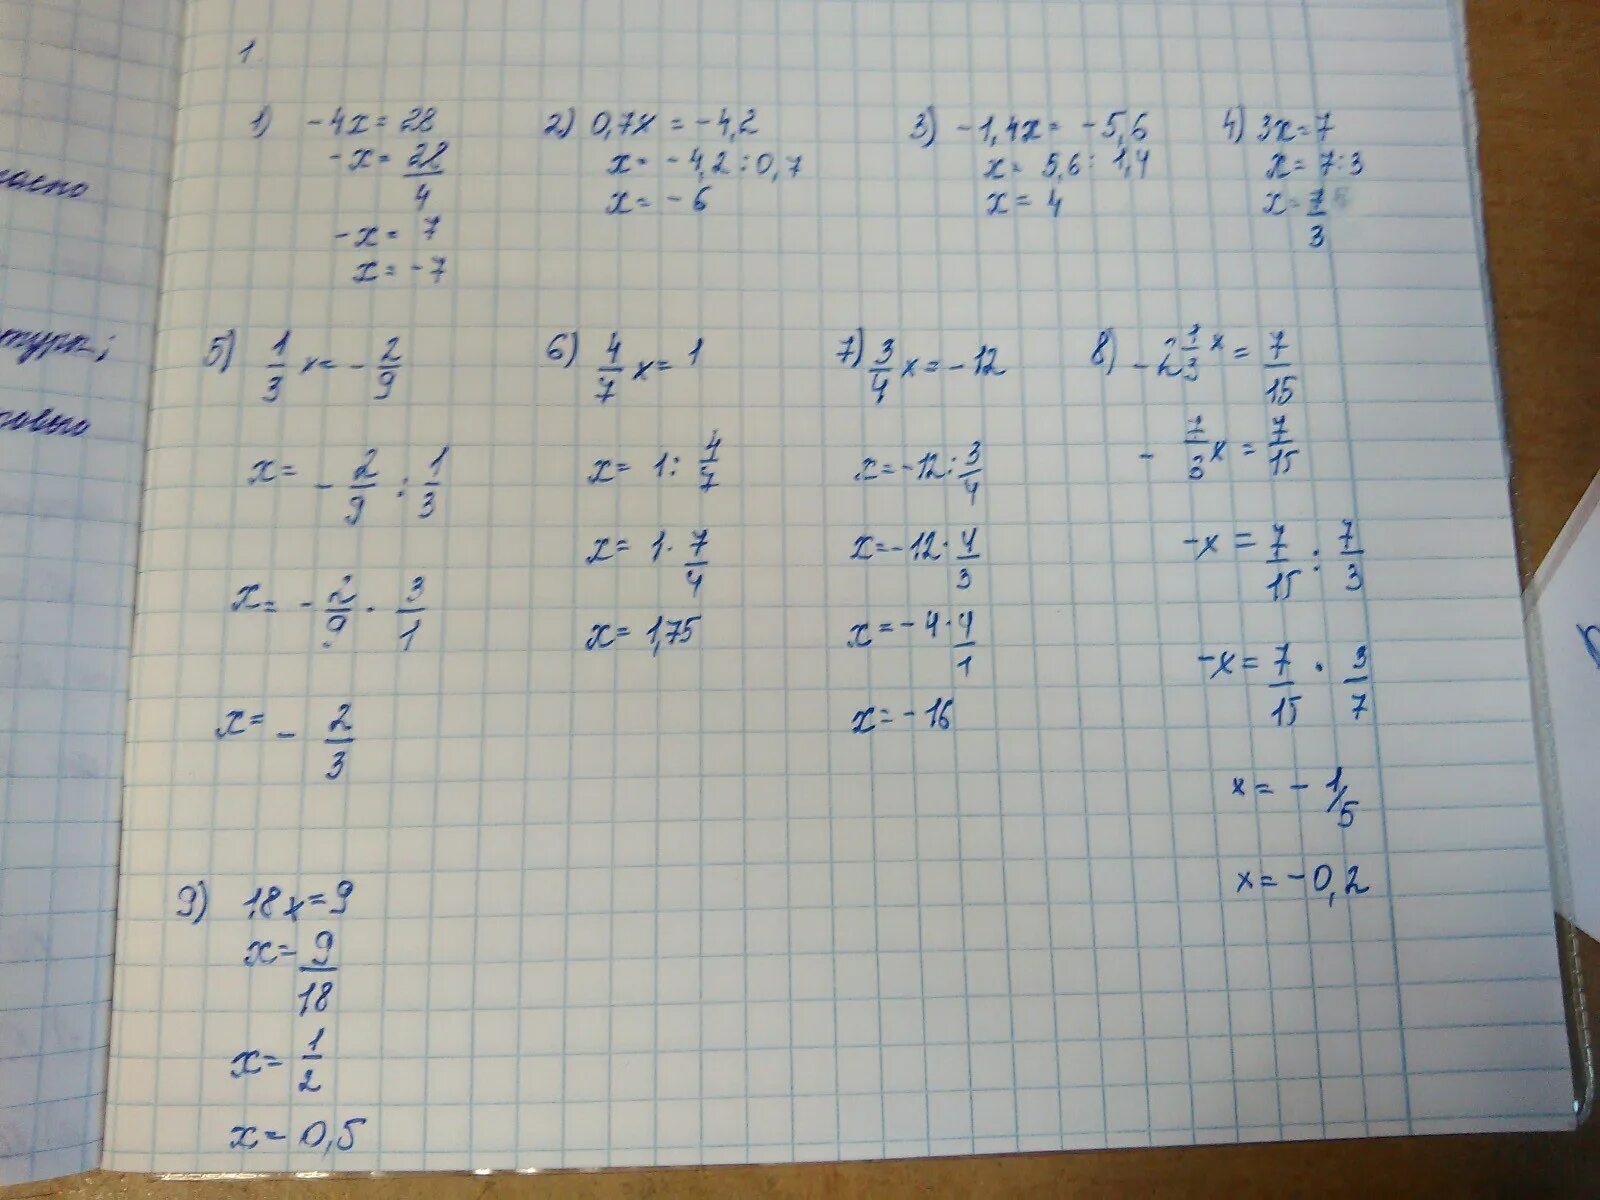 1.
1) -4x = 28
-x = 28/4
-x = 7
x = -7
2) 0,7x = -4,2
x = -4,2 : 0,7
x = -6
3) -1,4x = -5,6
x = 5,6 : 1,4
x = 4
4) 3x = 7
x = 7 : 3
x = 7/3
5) 1/3 x = - 2/9
x = - 2/9 : 1/3
x = - 2/9 · 3/1
x = - 2/3
6) 4/7 x = 1
x = 1 : 4/7
x = 1 · 7/4
x = 1,75
7) 3/4 x = -12
x = -12 : 3/4
x = -12 · 4/3
x = -4 · 4/1
x = -16
8) -2 1/3 x = 7/15
- 7/3 x = 7/15
-x = 7/15 : 7/3
-x = 7/15 · 3/7
x = - 1/5
x = -0,2
9) 18x = 9
x = 9/18
x = 1/2
x = 0,5